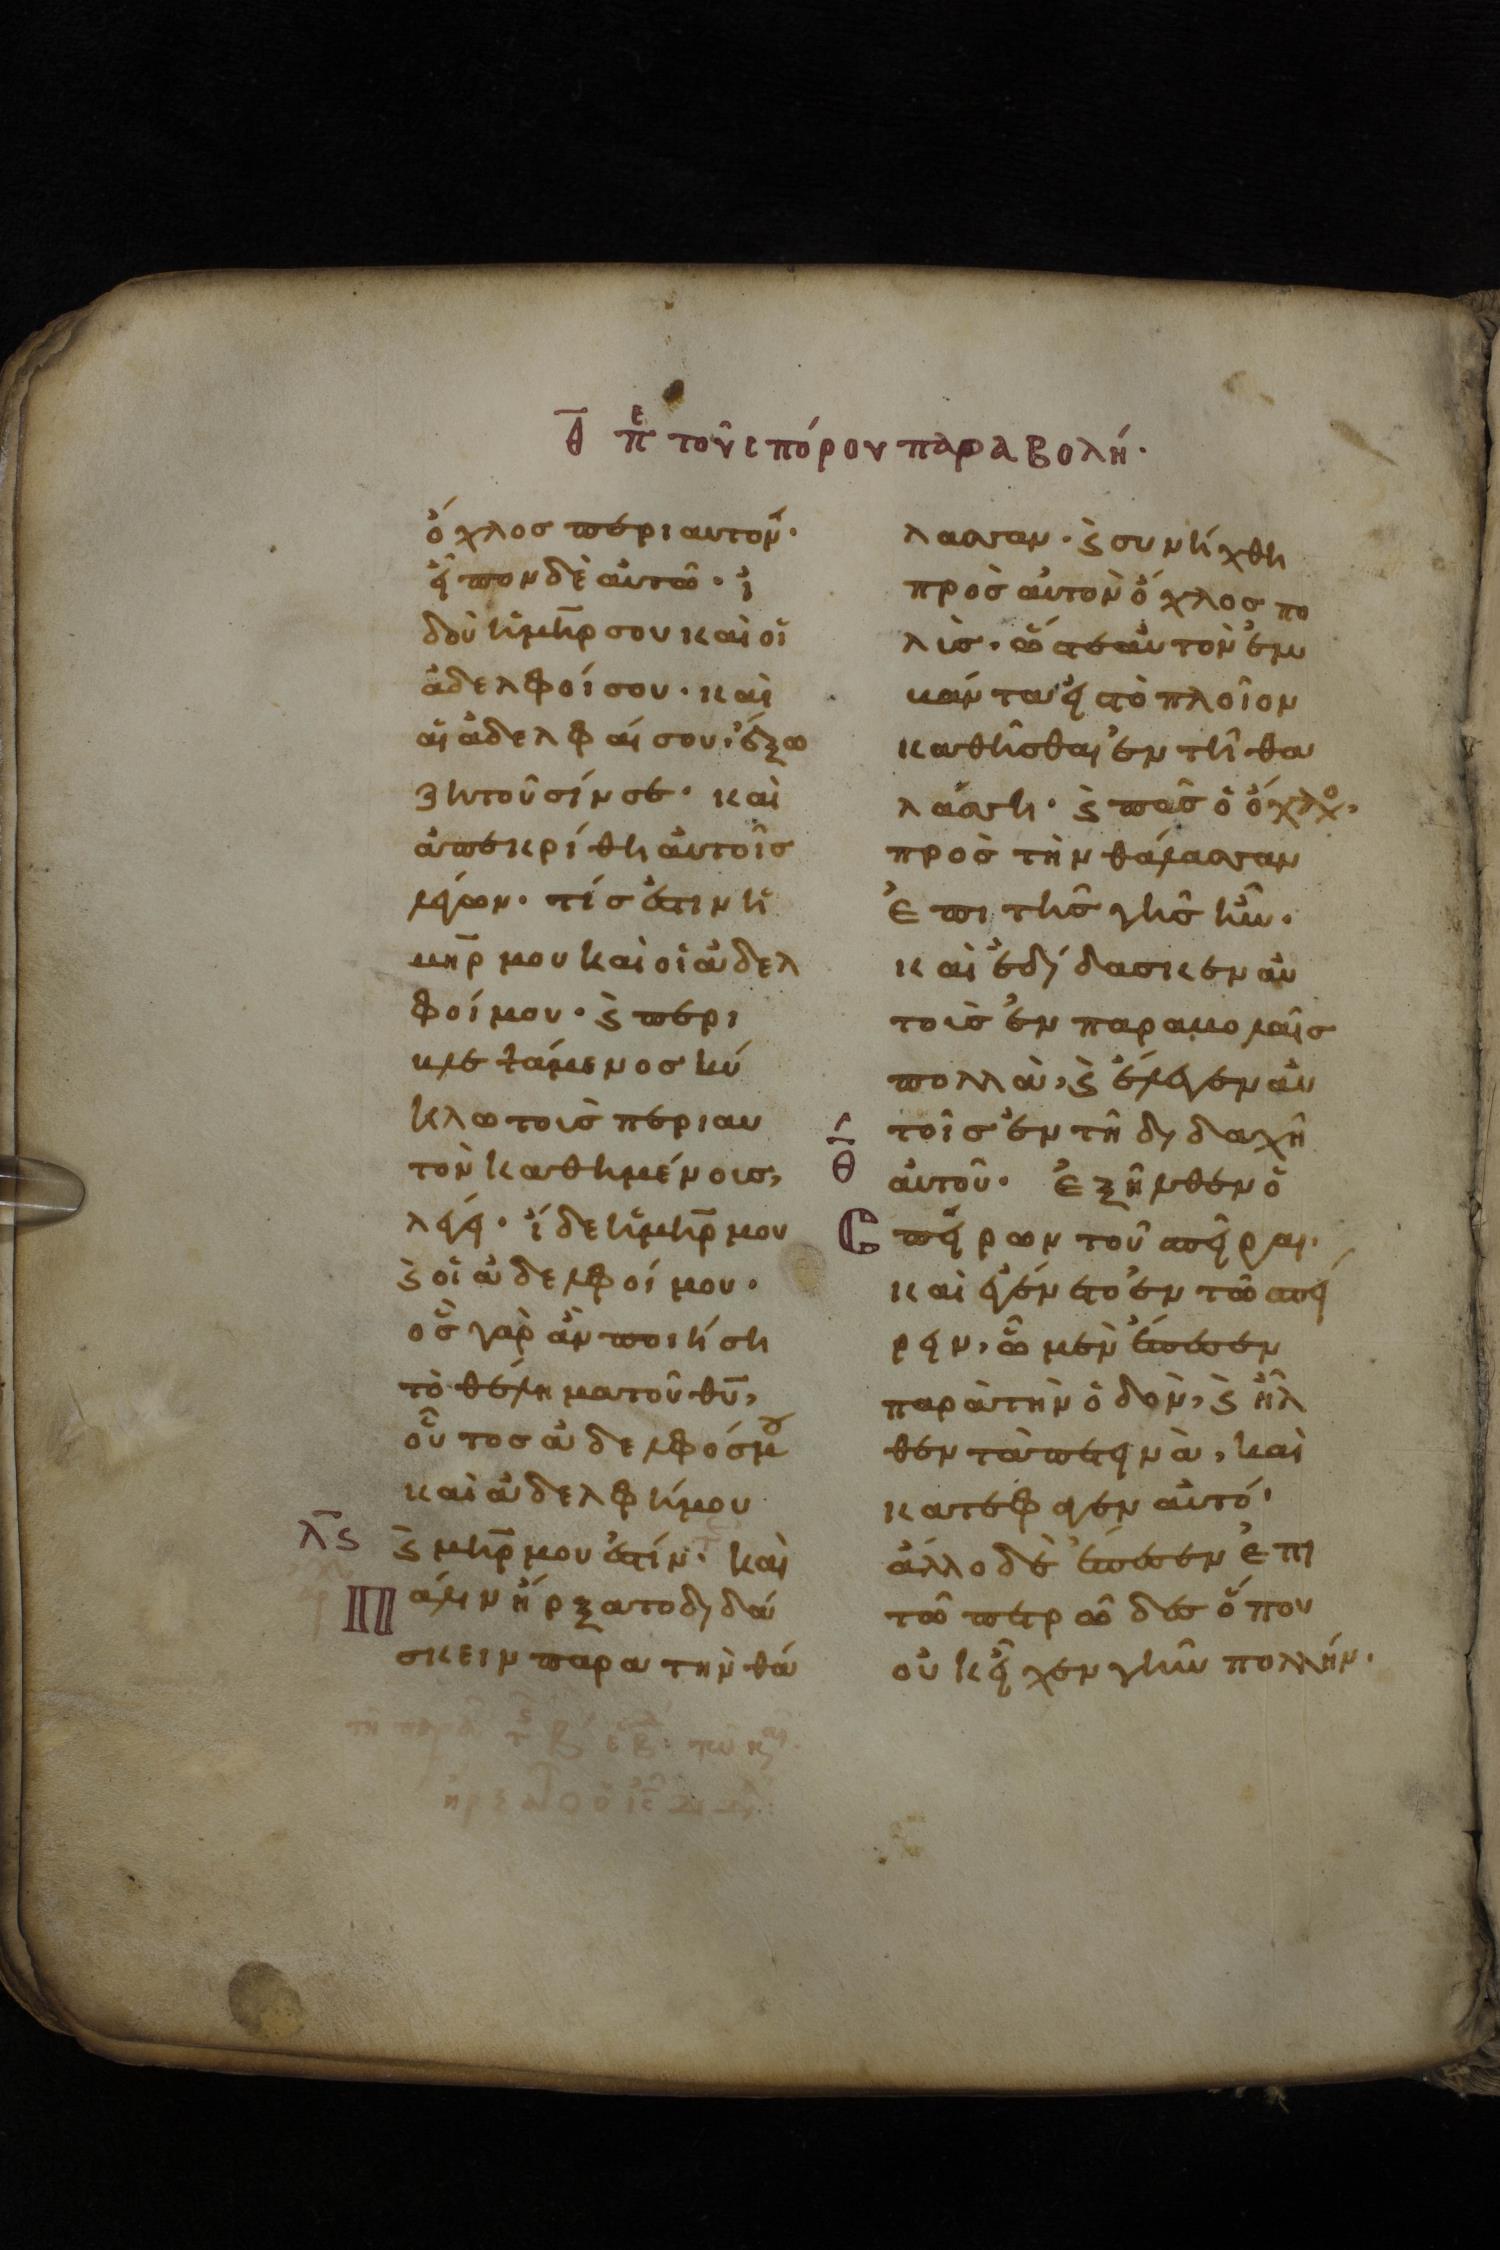 θ̄ πε τοῦ σπόρου παραβολή·
ὄχλος περὶ αυτόν·
εἶπον δὲ αὐτῶ· ἰ
δοὺ ἡ μη̅ρ σου καὶ οἱ
ἀδελφοί σου· καὶ
αἱ ἀδελφαί σου, ἔξω
ζητοῦσίν σε· καὶ
ἀπεκρίθη αὐτοῖς
λέγων· τίς ἐστιν ἡ
μη̅ρ μου καὶ οἱ ἀδελ
φοί μου· ϛ̀ περι
βλεψάμενος κύ
κλω τοὺς περὶ αυ
τὸν καθημένους,
λέγει· ἴδε ἡ μη̅ρ μου
ϛ̀ οἱ ἀδελφοί μου·
ὃς γὰρ ἂν ποιήση
τὸ θέλημα τοῦ θυ̅,
οὗτος ἀδελφός μου
καὶ ἀδελφή μου
ϛ̀ μη̅ρ μου ἐστίν· καὶ
λϛ
Πάλιν ἤρξατο διδά
σκειν παρα τὴν θά
λασσαν· ϛ̀ συνήχθη
πρὸς αὐτὸν ὄχλος πο
λὺς, ὥστε αὐτὸν ἐμ
βάντα εἰς τὸ πλοῖον
καθῆσθαι ἐν τῆ θα
λάσση· ϛ̀ πᾶς ὁ ὄχλος,
πρὸς τὴν θάλασσαν
ἐπι τῆς γῆς ἦν·
καὶ ἐδίδασκεν αὐ
τοὺς ἐν παραβολαῖς
πολλὰ, ϛ̀ ἔλεγεν αὐ
τοῖς ἐν τῆ διδαχῆ
θ
αὐτοῦ· ἐξῆλθεν ὁ
Σπείρων τοῦ σπεῖραι·
καὶ ἐγένετο ἐν τῶ σπεί
ρειν, ὃ μὲν ἔπεσεν
παρὰ τὴν ὁδὸν, ϛ̀ ἦλ
θεν τὰ πετεινὰ, καὶ
κατέφαγεν αὐτό·
ἄλλο δὲ ἔπεσεν ἐπι
τὸ πετρῶδες ὅπου
οὐκ εἶχεν γῆν πολλήν·